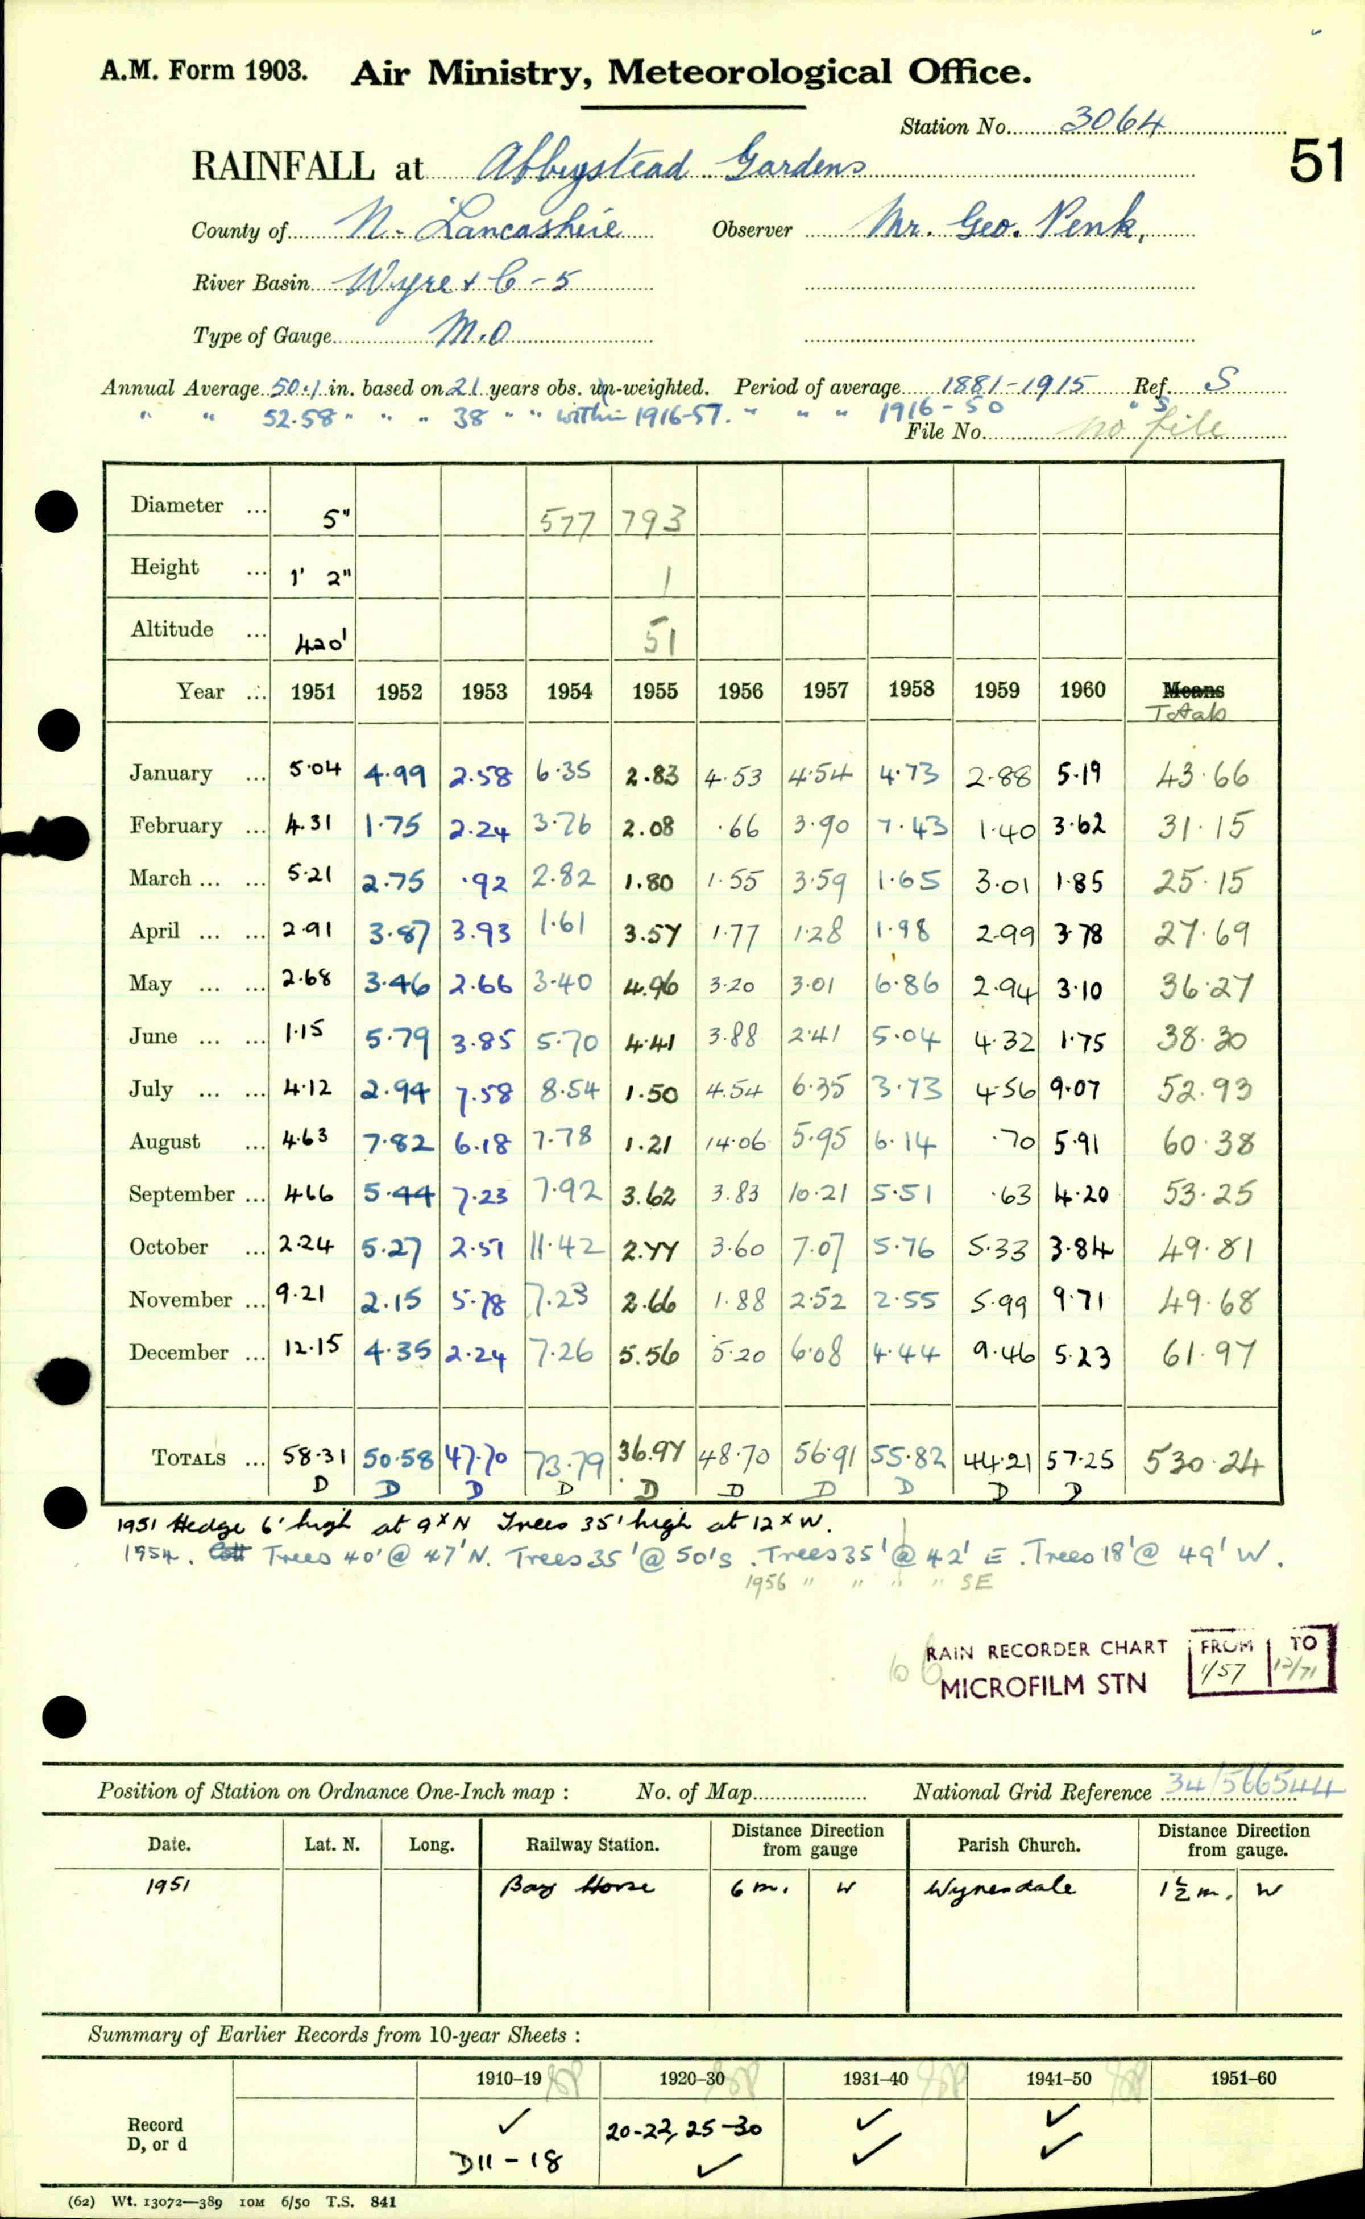 A.M. Form 1903. Air Ministry, Meteorological Office.
Station No. 3064
51
RAINFALL at Abbeystead Gardens
County of N. Lancashire Observer Mr. Geo. Penk.
River Basin Wyre & C-5
Type of Gauge M.O
Annual Average 50.1 in. based on 21 years obs. un-weighted. Period of average 1881-1915 Ref. S
" " 52.58 " " " 38 " " within 1916-57. " " " 1916-50 " S
File No. no file
Diameter ... 5" 577 793
Height ... 1' 2" 1
Altitude ... 420' 51
Year ... 1951 1952 1953 1954 1955 1956 1957 1958 1959 1960 Means
Totals
January ... 5.04 4.99 2.58 6.35 2.83 4.53 4.54 4.73 2.88 5.19 43.66
February ... 4.31 1.75 2.24 3.76 2.08 .66 3.90 7.43 1.40 3.62 31.15
March ... ... 5.21 2.75 .92 2.82 1.80 1.55 3.59 1.65 3.01 1.85 25.15
April ... ... 2.91 3.87 3.93 1.61 3.57 1.77 1.28 1.98 2.99 3.78 27.69
May ... ... 2.68 3.46 2.66 3.40 4.96 3.20 3.01 6.86 2.94 3.10 36.27
June ... ... 1.15 5.79 3.85 5.70 4.41 3.88 2.41 5.04 4.32 1.75 38.30
July ... ... 4.12 2.94 7.58 8.54 1.50 4.54 6.35 3.73 4.56 9.07 52.93
August ... 4.63 7.82 6.18 7.78 1.21 14.06 5.95 6.14 .70 5.91 60.38
September ... 4.66 5.44 7.23 7.92 3.62 3.83 10.21 5.51 .63 4.20 53.25
October ... 2.24 5.27 2.51 11.42 2.77 3.60 7.07 5.76 5.33 3.84 49.81
November ... 9.21 2.15 5.78 7.23 2.66 1.88 2.52 2.55 5.99 9.71 49.68
December ... 12.15 4.35 2.24 7.26 5.56 5.20 6.08 4.44 9.46 5.23 61.97
TOTALS ... 58.31 50.58 47.70 73.79 36.97 48.70 56.91 55.82 44.21 57.25 530.24
D D D D D D D D D D
1951 Hedge 6' high at 9 x N Trees 35' high at 12 x W.
1954. Trees 40' @ 47' N. Trees 35' @ 50' S. Trees 35' @ 42' E. Trees 18' @ 49' W.
1956 " " " " SE
RAIN RECORDER CHART FROM TO
MICROFILM STN 1/57 12/71
Position of Station on Ordnance One-Inch map : No. of Map National Grid Reference 34/566544
Date. Lat. N. Long. Railway Station. Distance Direction from gauge Parish Church. Distance Direction from gauge.
1951 Bay Horse 6 m. W Wyresdale 1½ m. W
Summary of Earlier Records from 10-year Sheets :
1910-19 1920-30 1931-40 1941-50 1951-60
Record ✓ 20-22, 25-30 ✓ ✓
D, or d D11-18 ✓ ✓ ✓
(62) Wt. 13072—389 10M 6/50 T.S. 841